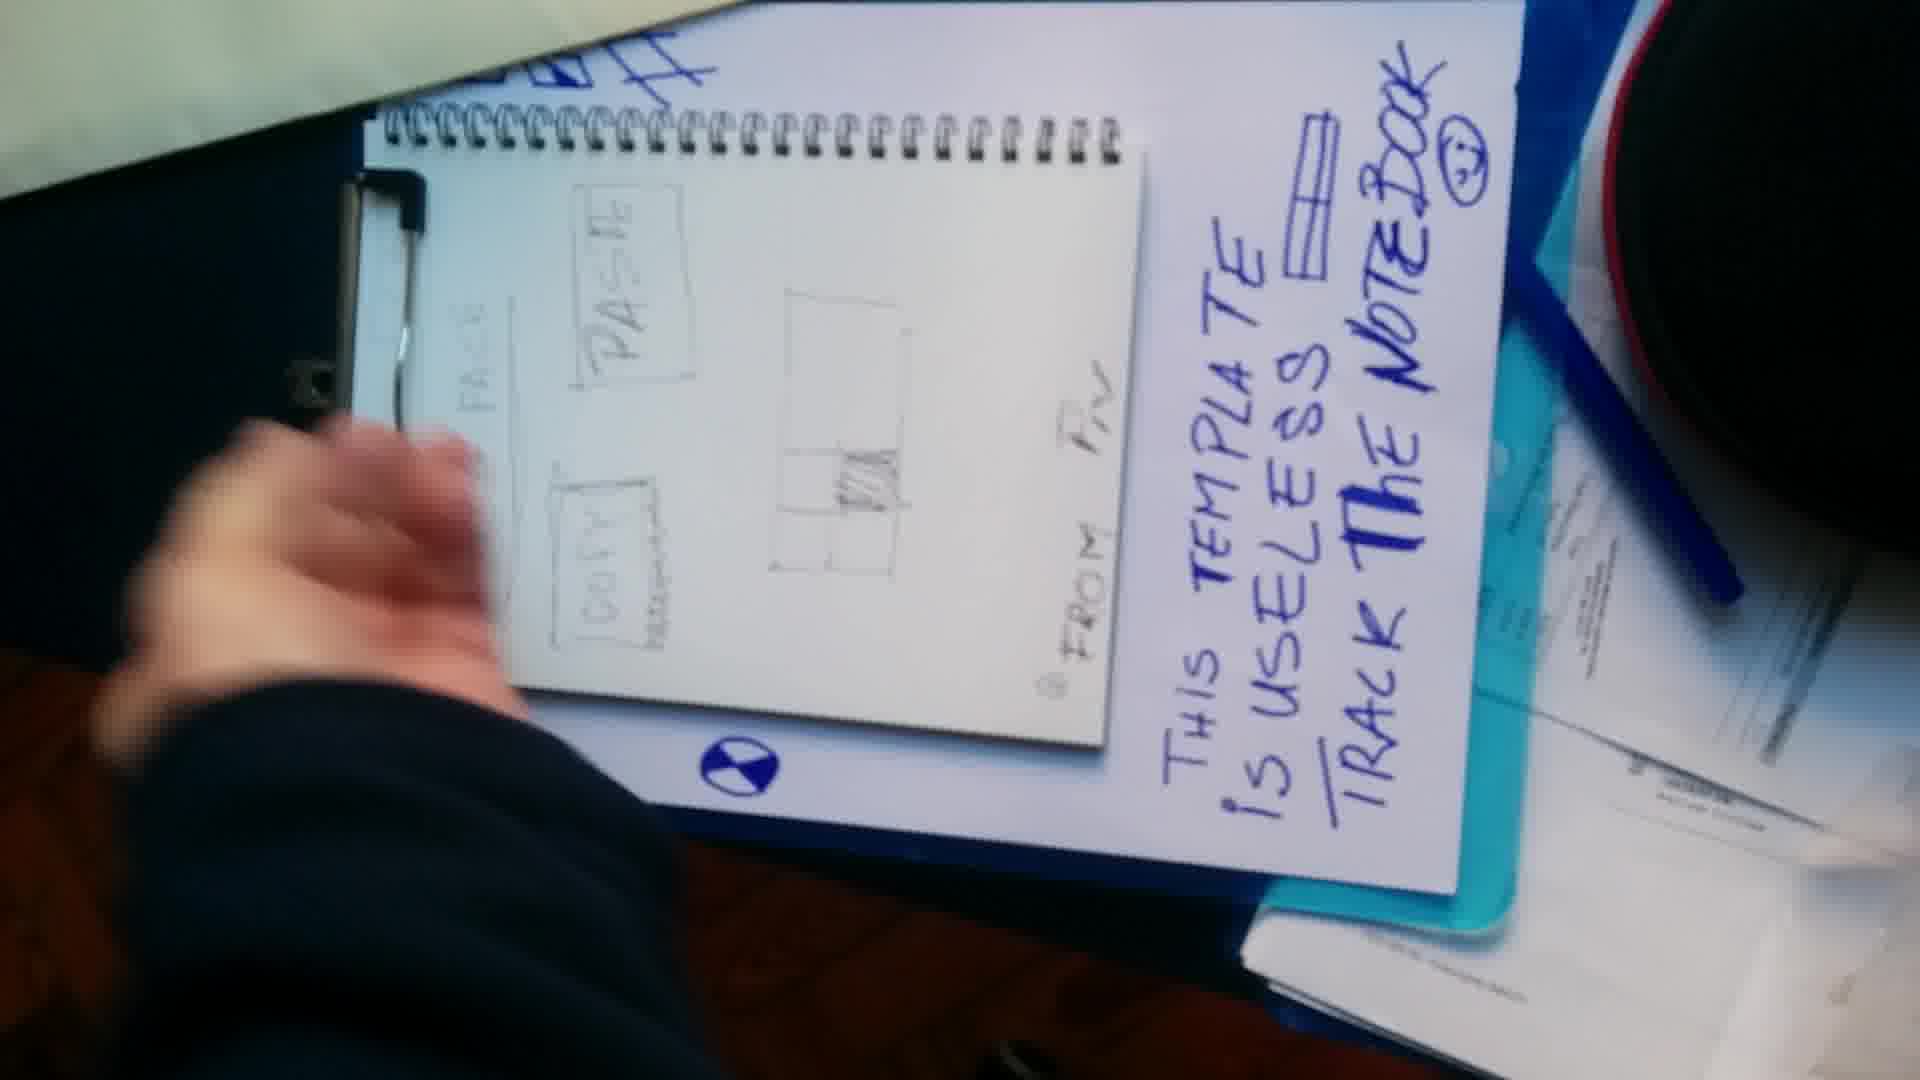 PAGE
COPY
PASTE
FROM
THIS TEMPLATE
IS USELESS
TRACK THE NOTEBOOK